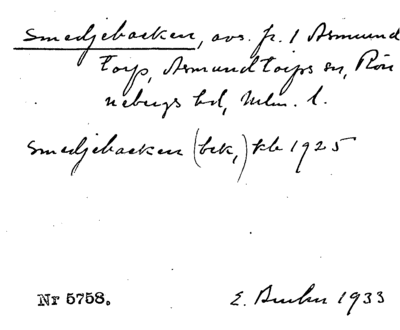 Smedjebacken, avs. fr. 1 Asmund
torp, Asmundtorps sn, Rön
nebergs hd, Mlm. l.
Smedjebacken (bek,) kb 1925
Nr 5758.
E. 1933